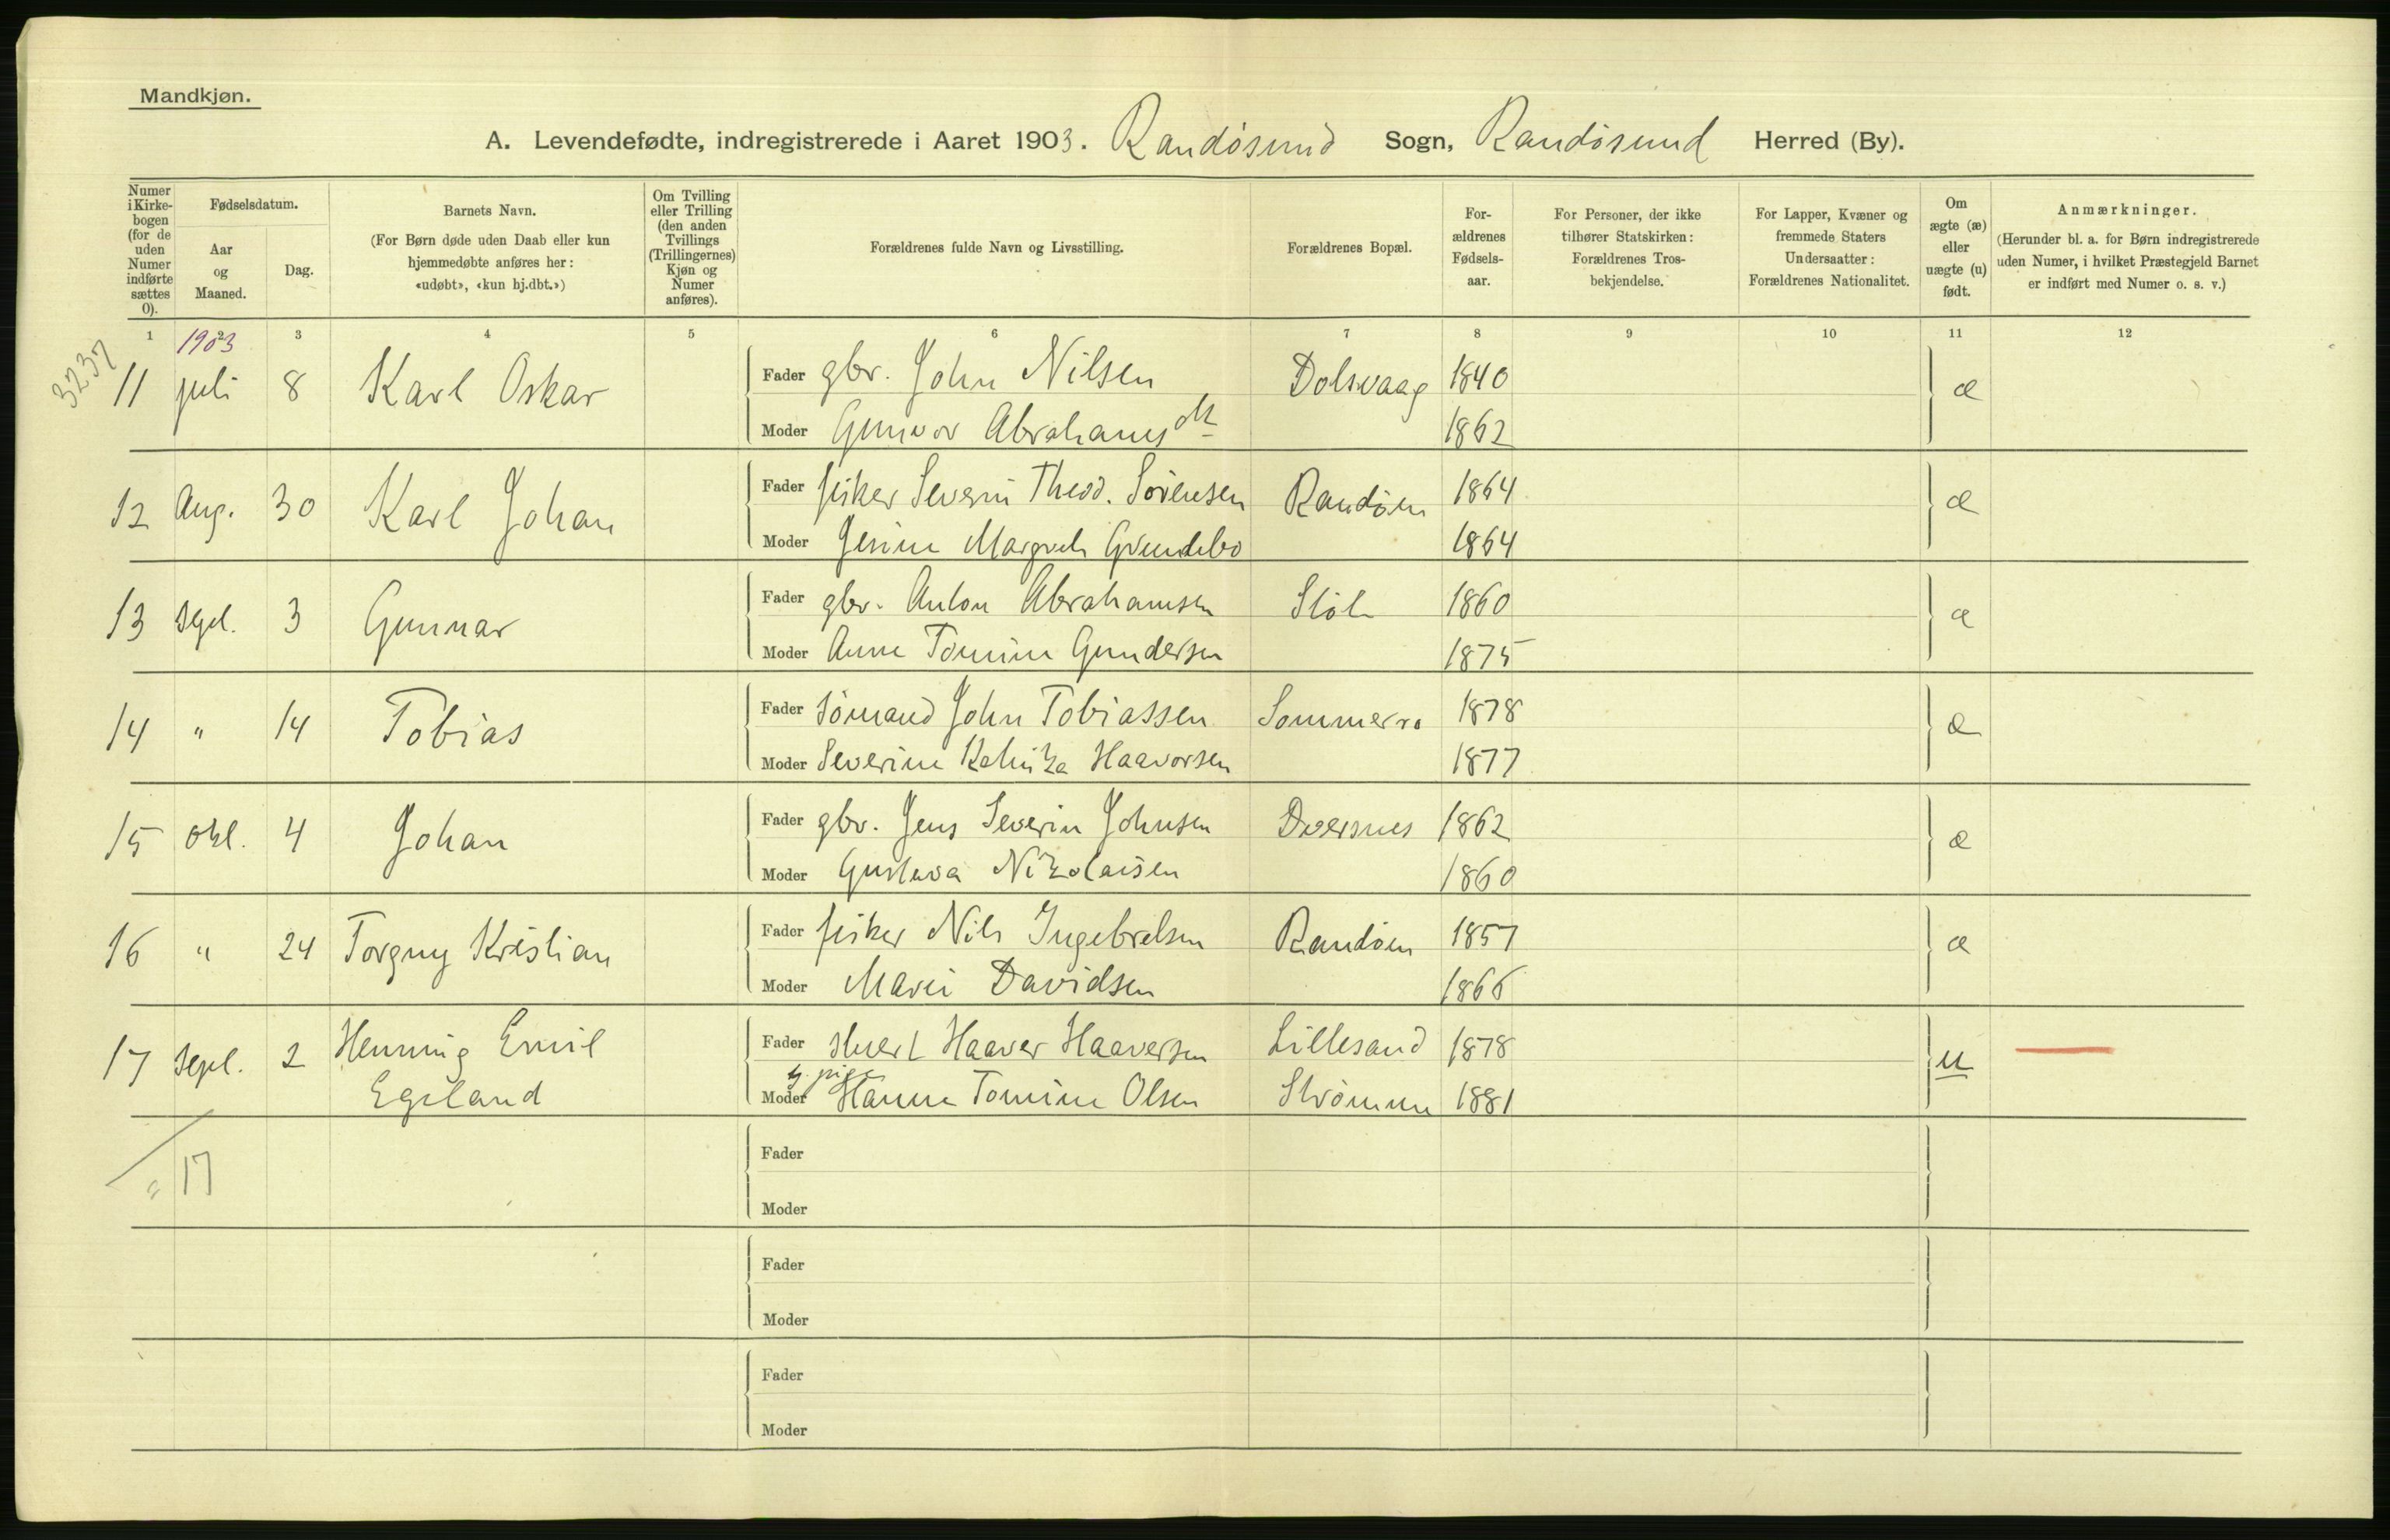 Mandkjøn.
A. Levendefødte, indregistrerede i Aaret 1903. Randøsund Sogn, Randøsund Herred (By).
Numer i Kirkebogen (for de uden Numer indførte sættes 0).
Fødselsdatum.
Aar og Maaned.
Dag.
Barnets Navn.
(For Børn døde uden Daab eller kun hjemmedøbte anføres her: «udøbt», «kun hj.dbt.»)
Om Tvilling eller Trilling (den anden Tvillings (Trillingernes) Kjøn og Numer anføres).
Forældrenes fulde Navn og Livsstilling.
Forældrenes Bopæl.
For-ældrenes Fødsels-aar.
For Personer, der ikke tilhører Statskirken: Forældrenes Tros-bekjendelse.
For Lapper, Kvæner og fremmede Staters Undersaatter: Forældrenes Nationalitet.
Om ægte (æ) eller uægte (u) født.
Anmærkninger.
(Herunder bl. a. for Børn indregistrerede uden Numer, i hvilket Præstegjeld Barnet er indført med Numer o. s. v.)
1 2 3 4 5 6 7 8 9 10 11 12
1903
3237
11 juli 8 Karl Oskar Fader gbr. John Nilsen Dolsvaag 1840 æ
Moder Gunvor Abrahamsdt 1862
12 Aug. 30 Karl Johan Fader fisker Severin Theod. Sörensen Randöen 1864 æ
Moder Jesine Margreth Grundebo 1864
13 Sept. 3 Gunnar Fader gbr. Anton Abrahamsen Stöle 1860 æ
Moder Anne Tomine Gundersen 1875
14 " 14 Tobias Fader Sömand John Tobiassen Sommerro 1878 æ
Moder Severine Haavorsen 1877
15 Okt. 4 Johan Fader gbr. Jens Severin Johnsen Dversnes 1862 æ
Moder Gustava Nikolaisen 1860
16 " 24 Torgny Kristian Fader fisker Nils Ingebretsen Randöen 1857 æ
Moder Marie Davidsen 1866
17 Sept. 2 Henning Emil Fader Haaver Haaversen Lillesand 1878 u
Egeland Moder pige Hanne Tomine Olsen Strömme 1881
17
Fader
Moder
Fader
Moder
Fader
Moder